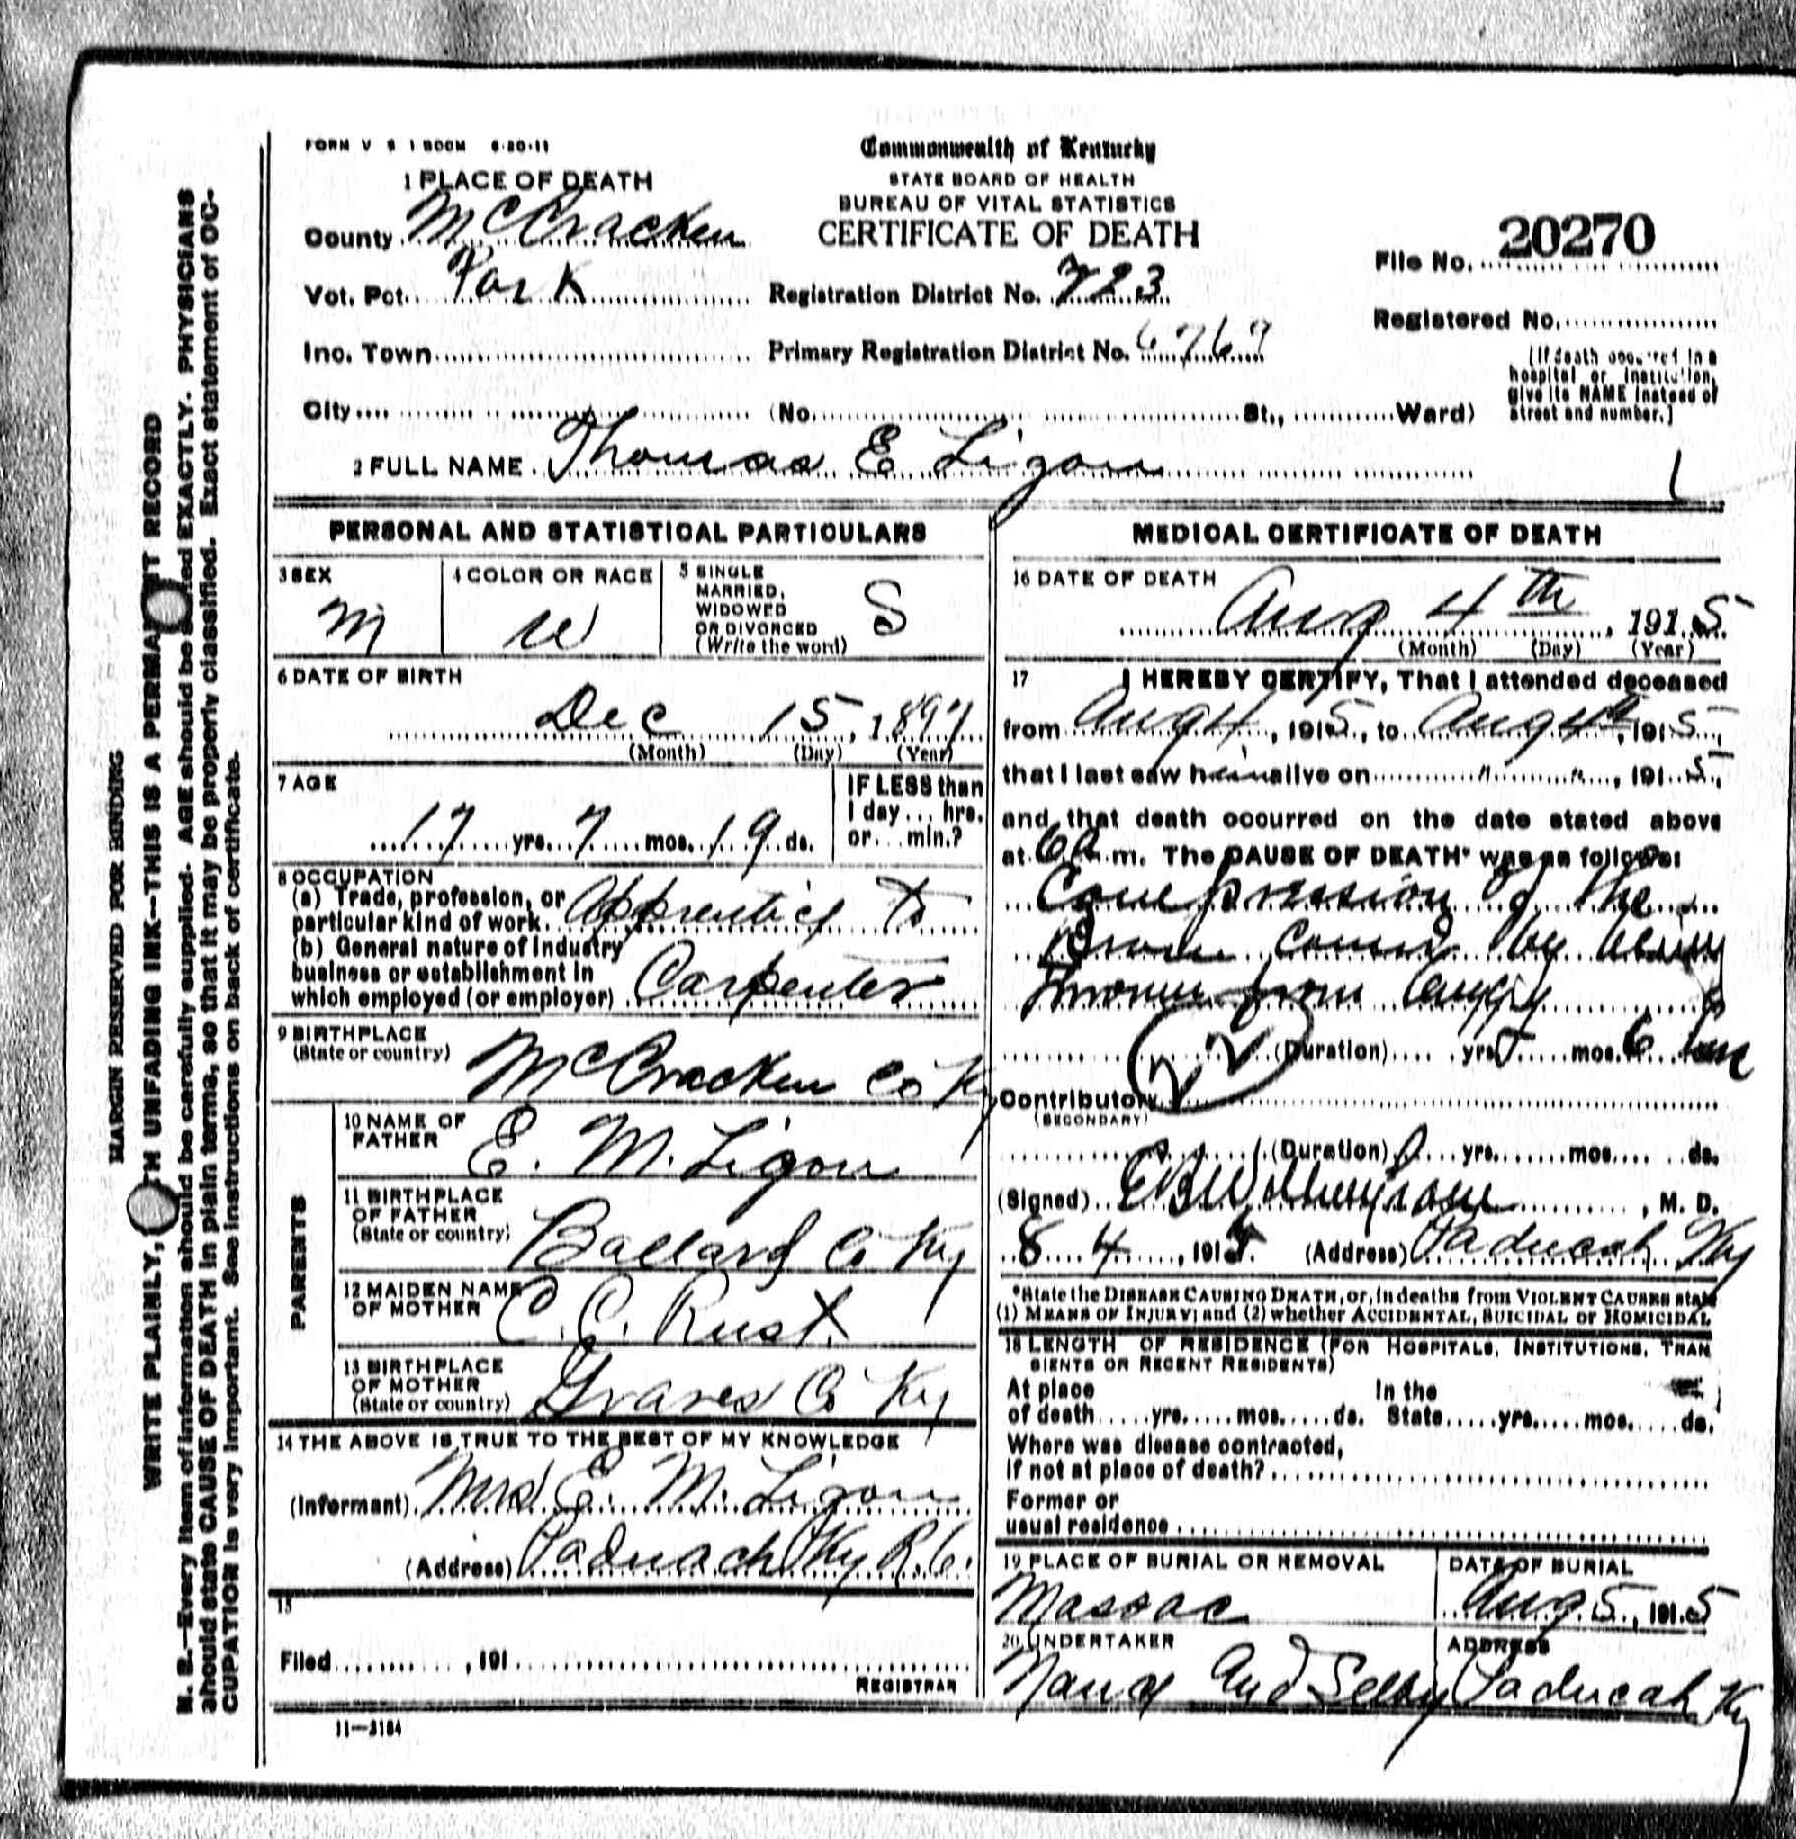 FORM V S 1 500M 6-20-11
Commonwealth of Kentucky
STATE BOARD OF HEALTH
BUREAU OF VITAL STATISTICS
CERTIFICATE OF DEATH
1 PLACE OF DEATH
County McCracken
Vot. Pct. Park
Registration District No. 723
File No. 20270
Inc. Town
Primary Registration District No. 6769
Registered No.
City (No. St., Ward)
(If death occurred in a
hospital or institution,
give its NAME instead of
street and number.)
2 FULL NAME Thomas E Ligon
PERSONAL AND STATISTICAL PARTICULARS
3 SEX
M
4 COLOR OR RACE
W
5 SINGLE
MARRIED,
WIDOWED
OR DIVORCED
(Write the word)
S
6 DATE OF BIRTH
Dec 15, 1897
(Month) (Day) (Year)
7 AGE
17 yrs. 7 mos. 19 ds.
IF LESS than
1 day... hrs.
or... min.?
8 OCCUPATION
(a) Trade, profession, or
particular kind of work. Apprentice to
(b) General nature of industry
business or establishment in
which employed (or employer) Carpenter
9 BIRTHPLACE
(State or country) McCracken Co Ky
PARENTS
10 NAME OF
FATHER E. M. Ligon
11 BIRTHPLACE
OF FATHER
(State or country) Ballard Co Ky
12 MAIDEN NAME
OF MOTHER C. C. Rust
13 BIRTHPLACE
OF MOTHER
(State or country) Graves Co Ky
14 THE ABOVE IS TRUE TO THE BEST OF MY KNOWLEDGE
(Informant) Mrs E. M. Ligon
(Address) Paduach Ky R. 6.
15
Filed , 191
REGISTRAR
11-3184
MEDICAL CERTIFICATE OF DEATH
16 DATE OF DEATH
Aug 4th, 1915
(Month) (Day) (Year)
17 I HEREBY CERTIFY, That I attended deceased
from Aug 4, 1915, to Aug 4th, 1915,
that I last saw him alive on " ", 1915,
and that death occurred on the date stated above
at 6 a. m. The CAUSE OF DEATH* was as follows:
Compression of the
Brain caused by being
thrown from buggy
(Duration) yrs. mos. 6
Contributory
(SECONDARY)
(Duration) yrs. mos. ds.
(Signed) , M. D.
8 4, 1915 (Address) Paducah Ky
*State the DISEASE CAUSING DEATH, or, in deaths from VIOLENT CAUSES state
(1) MEANS OF INJURY; and (2) whether ACCIDENTAL, SUICIDAL or HOMICIDAL
18 LENGTH OF RESIDENCE (FOR HOSPITALS, INSTITUTIONS, TRAN
SIENTS OR RECENT RESIDENTS)
At place
of death yrs. mos. ds.
In the
State yrs. mos. ds.
Where was disease contracted,
if not at place of death?
Former or
usual residence
19 PLACE OF BURIAL OR REMOVAL
Massac
DATE OF BURIAL
Aug 5, 1915
20 UNDERTAKER
And
ADDRESS
Paducah Ky
MARGIN RESERVED FOR BINDING
WRITE PLAINLY, WITH UNFADING INK—THIS IS A PERMANENT RECORD
N. B.—Every item of information should be carefully supplied. AGE should be stated EXACTLY. PHYSICIANS
should state CAUSE OF DEATH in plain terms, so that it may be properly classified. Exact statement of OC-
CUPATION is very important. See instructions on back of certificate.